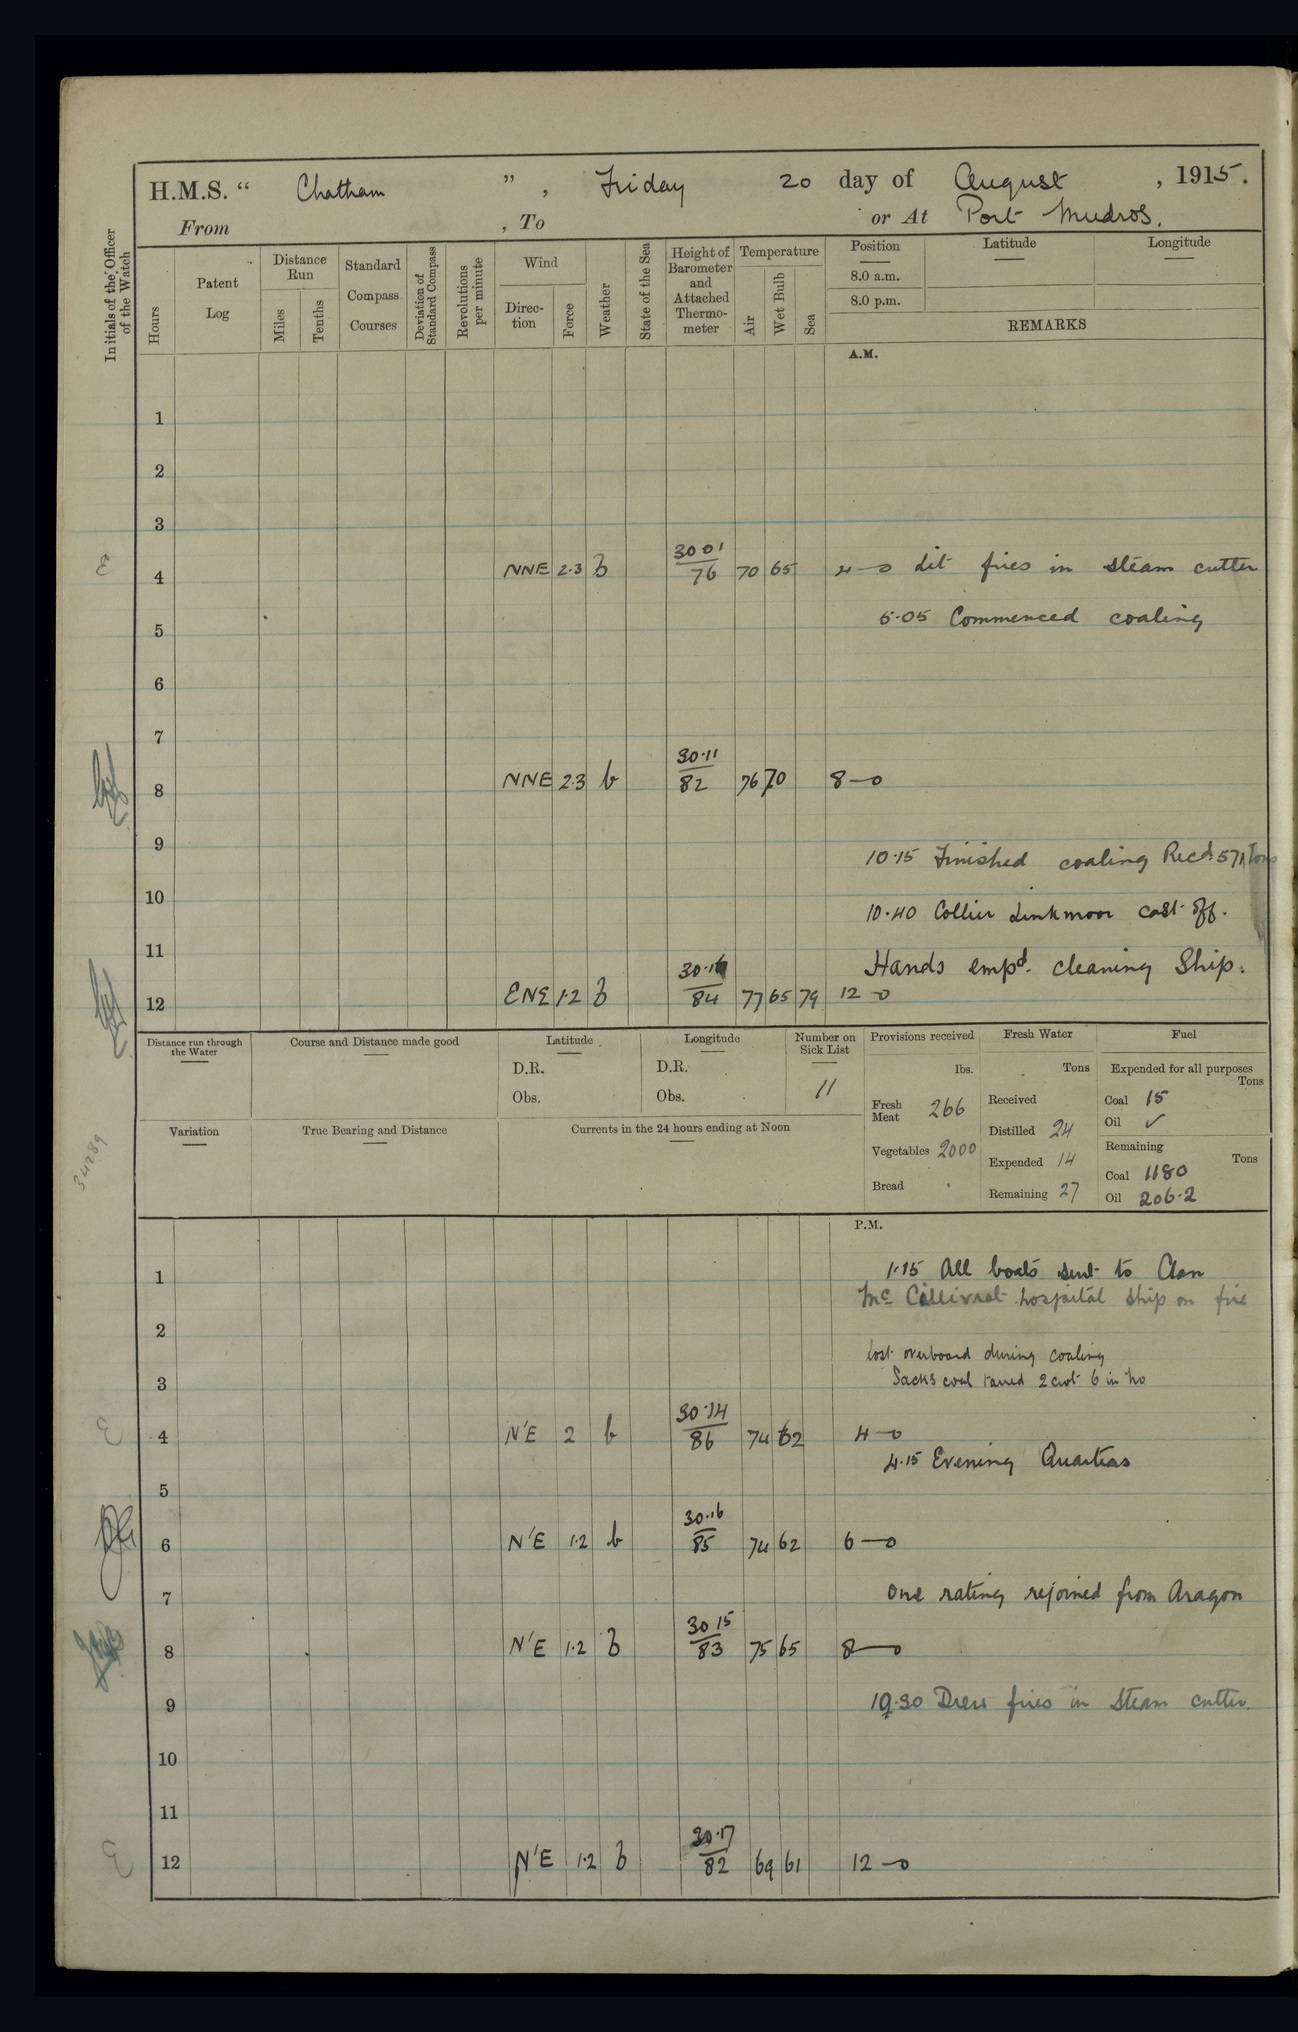 H.M.S. “ Chatham ” , Friday 20 day of August , 1915.
From , To or At Port Mudros.
Initials of the Officer of the Watch
Hours
Patent Log
Distance Run
Miles
Tenths
Standard Compass Courses
Deviation of Standard Compass
Revolutions per minute
Wind
Direction
Force
Weather
State of the Sea
Height of Barometer and Attached Thermometer
Temperature
Air
Wet Bulb
Sea
Position Latitude Longitude
8.0 a.m.
8.0 p.m.
REMARKS
A.M.
1
2
3
4 NNE 2.3 b 30 01 / 76 70 65 4—0 Lit fires in steam cutter
5.05 Commenced coaling
5
6
7
8 NNE 2.3 b 30.11 / 82 76 70 8—0
9
10.15 Finished coaling Recd. 571 Tons
10
10.40 Collier Linkmoor cast off.
11
Hands empd. cleaning Ship.
12 ENE 1.2 b 30.16 / 84 77 65 79 12—0
Distance run through the Water
Course and Distance made good
Latitude
D.R.
Obs.
Longitude
D.R.
Obs.
Number on Sick List
11
Provisions received
lbs.
Fresh Meat 266
Vegetables 2000
Bread
Fresh Water
Tons
Received
Distilled 24
Expended 14
Remaining 27
Fuel
Expended for all purposes
Tons
Coal 15
Oil ✓
Remaining
Tons
Coal 1180
Oil 206.2
Variation
True Bearing and Distance
Currents in the 24 hours ending at Noon
34289
P.M.
1.15 All boats sent to Clan
1
Mc Gillivrat hospital ship on fire
2
lost overboard during coaling
3 Sacks coal tarred 2 cwt 6 in No
4 N'E 2 b 30.14 / 86 74 62 4—0
4.15 Evening Quarters
5
6 N'E 1.2 b 30.16 / 85 74 62 6—0
7 One rating rejoined from Aragon
8 N'E 1.2 b 30 15 / 83 75 65 8—0
9 10.30 Drew fires in steam cutter.
10
11
12 N'E 1.2 b 30.17 / 82 69 61 12—0